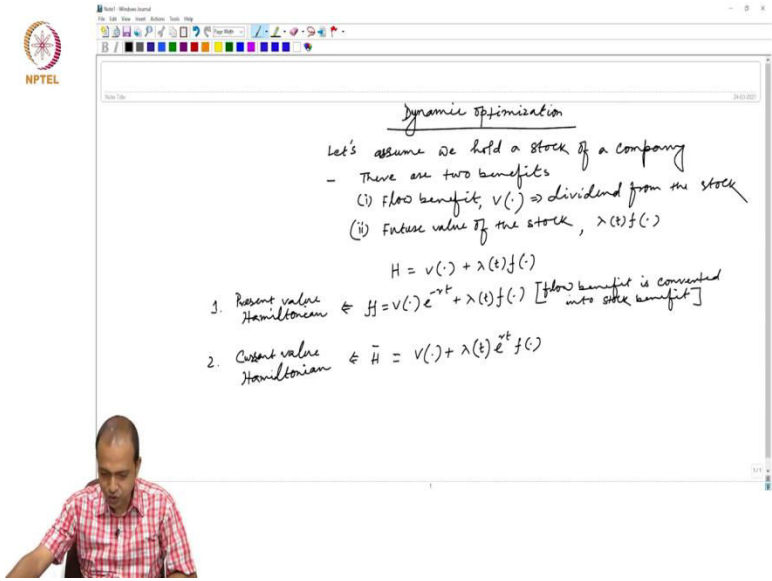 Note1 - Windows Journal
File Edit View Insert Actions Tools Help
Page Width
NPTEL
Note Title
24-03-2021
Dynamic optimization
Let's assume we hold a stock of a company
- There are two benefits
(i) Flow benefit, v(·) ⇒ dividend from the stock
(ii) Future value of the stock, λ(t)f(·)
H = v(·) + λ(t)f(·)
1. Present value Hamiltonian ⇐ H = v(·)e^{-rt} + λ(t)f(·) [flow benefit is converted into stock benefit]
2. Current value Hamiltonian ⇐ H̄ = v(·) + λ(t)e^{rt}f(·)
1/1
1